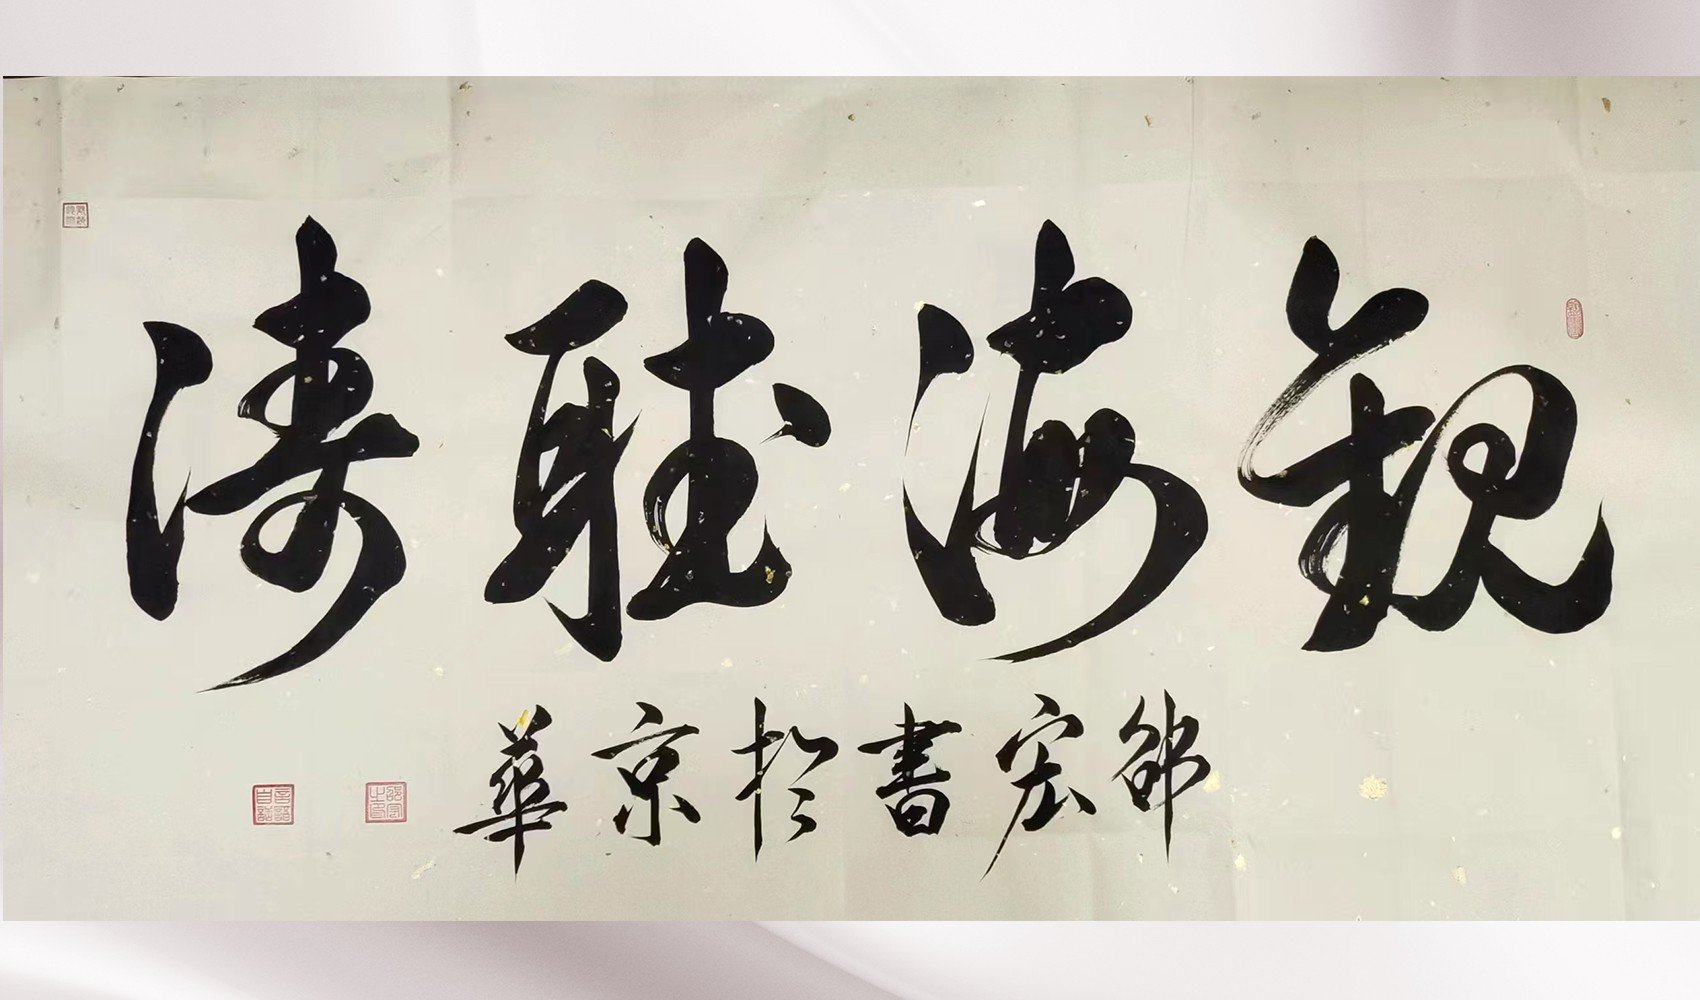 觀海聽濤
宏書於京華